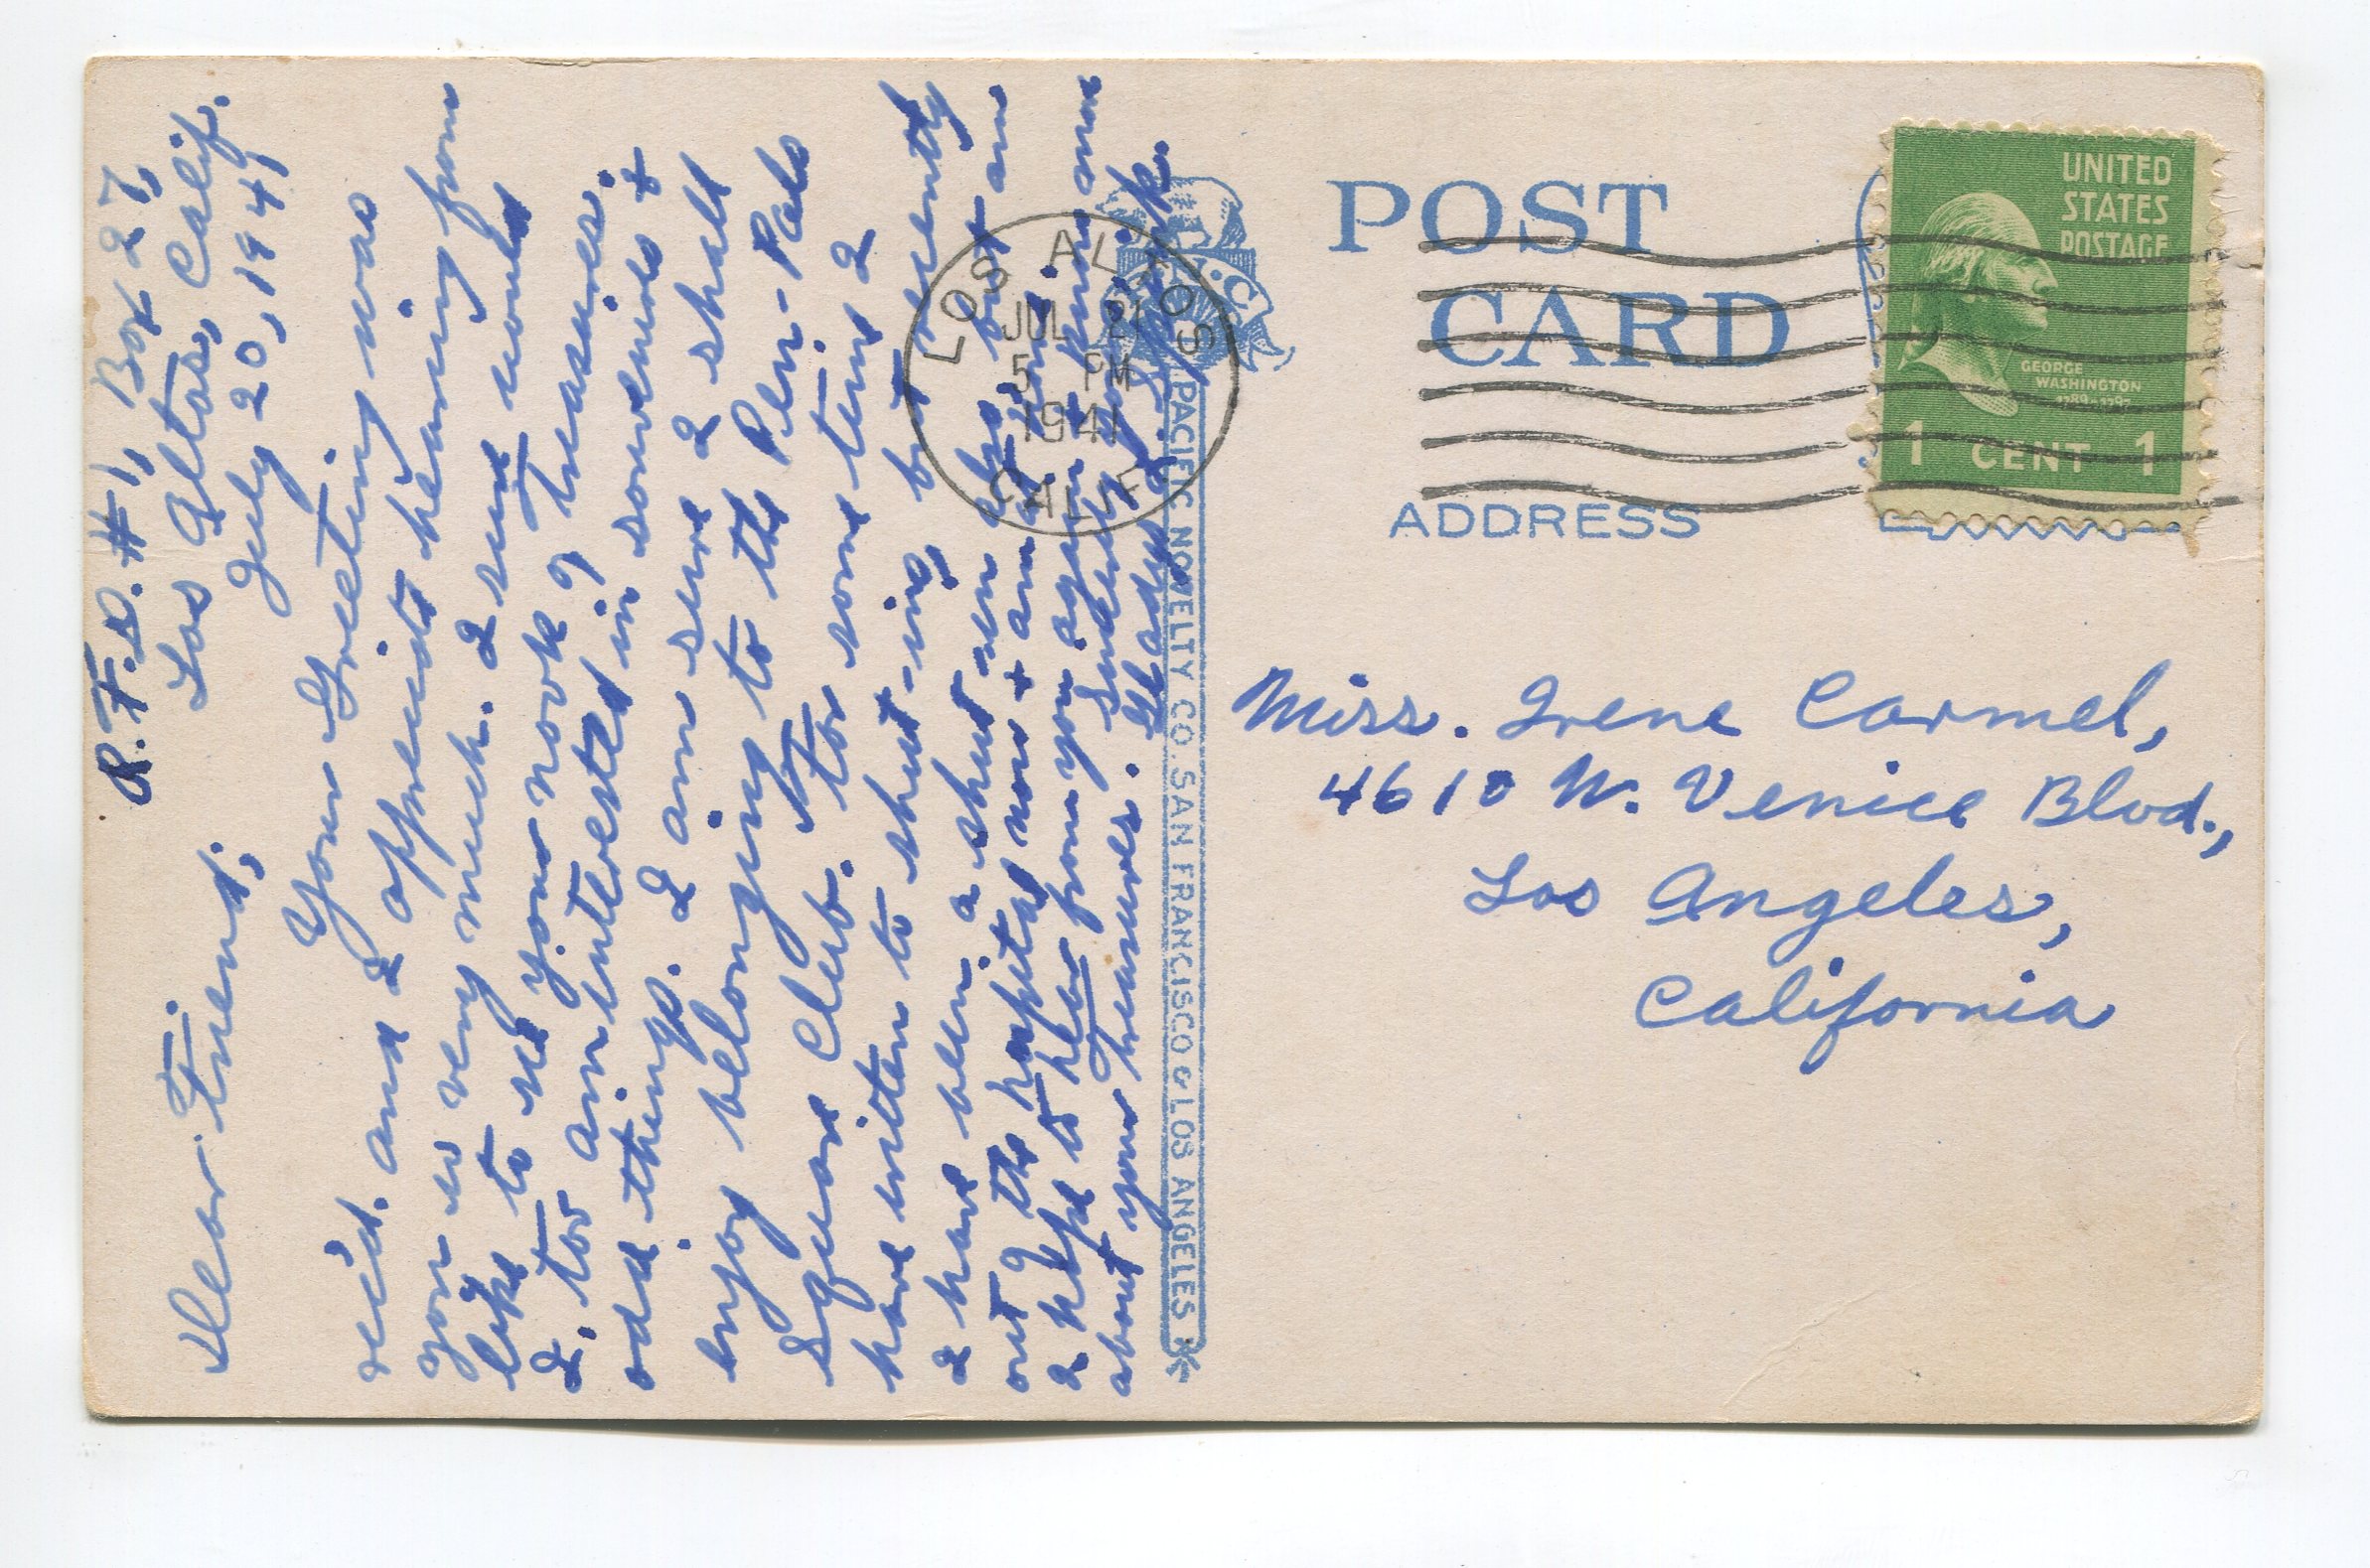 R.F.D. #1, Box 27,
Los Altos, Calif.
July 20, 1941
Dear Friend;
Your Greeting was
rec'd. and I appreciate hearing from
you so very much. I sure would
like to see your nook of treasures.
I. too am interested in souvenirs &
odd things. I am sure I shall
enjoy belonging to the Pen-Pals
Square Club. For some time I
have written to shut-ins, but recently
I have been a shut-in also but am
out of the hospital now & am at home.
I hope to hear from you again & know more
about your treasures. Sincerely yours,
Gladys J.
LOS ALTOS
JUL 21
5 PM
1941
CALIF.
PACIFIC NOVELTY CO. SAN FRANCISCO & LOS ANGELES
POST
CARD
ADDRESS
UNITED
STATES
POSTAGE
GEORGE
WASHINGTON
1789-1797
1 CENT 1
Miss. Irene Carmel,
4610 W. Venice Blvd.,
Los Angeles,
California